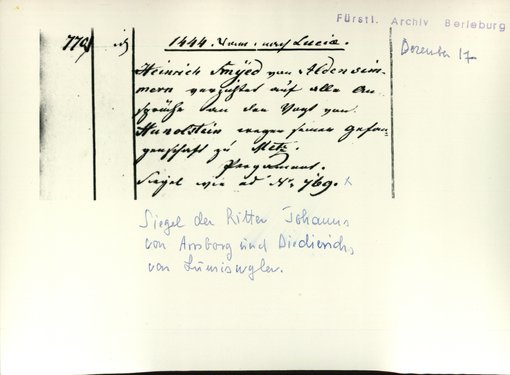 Fürstl. Archiv Berleburg
Dezember 17
779
1444. nach Lucia.
Heinrich von Aldensim-
mern verzichtet auf alle An-
sprüche an den Vogt von
Hunolstein wegen seiner Gefan-
genschaft zu Metz.
Pergament.
Siegel wie ad No 769.
Siegel der Ritter Johanns
von und Diedierichs
von